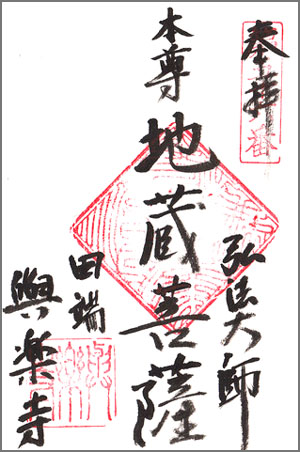 奉拝
弘法大師
本尊
地蔵菩薩
田端
與楽寺